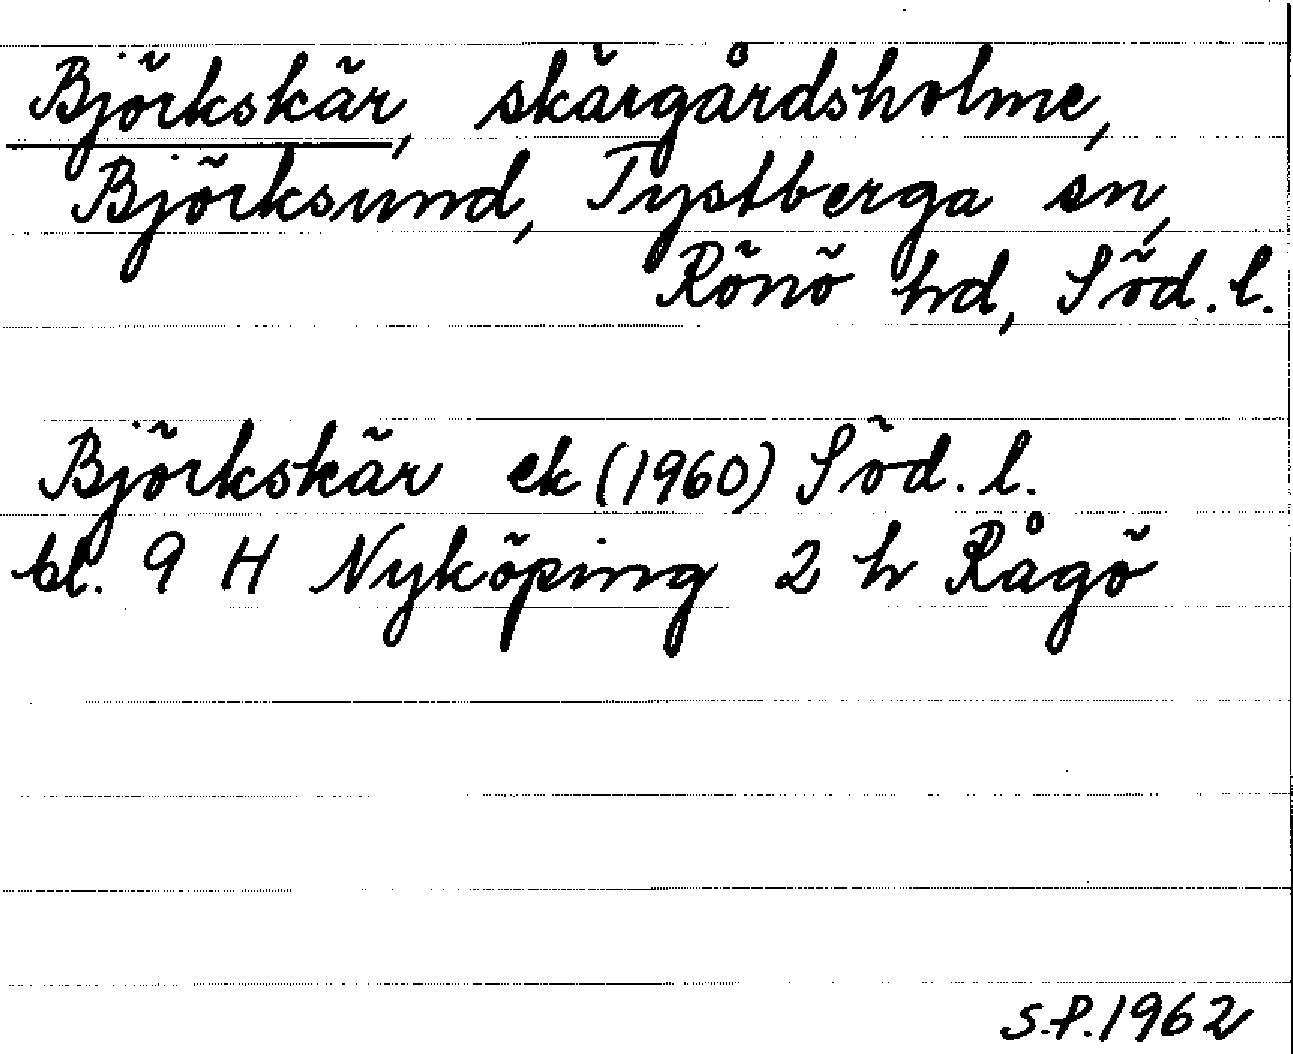 Björkskär, skärgårdsholme,
Björksund, Tystberga sn,
Rönö hd, Söd. l.
Björkskär ek (1960) Söd. l.
bl. 9 H Nyköping 2 h Rågö
S.P. 1962